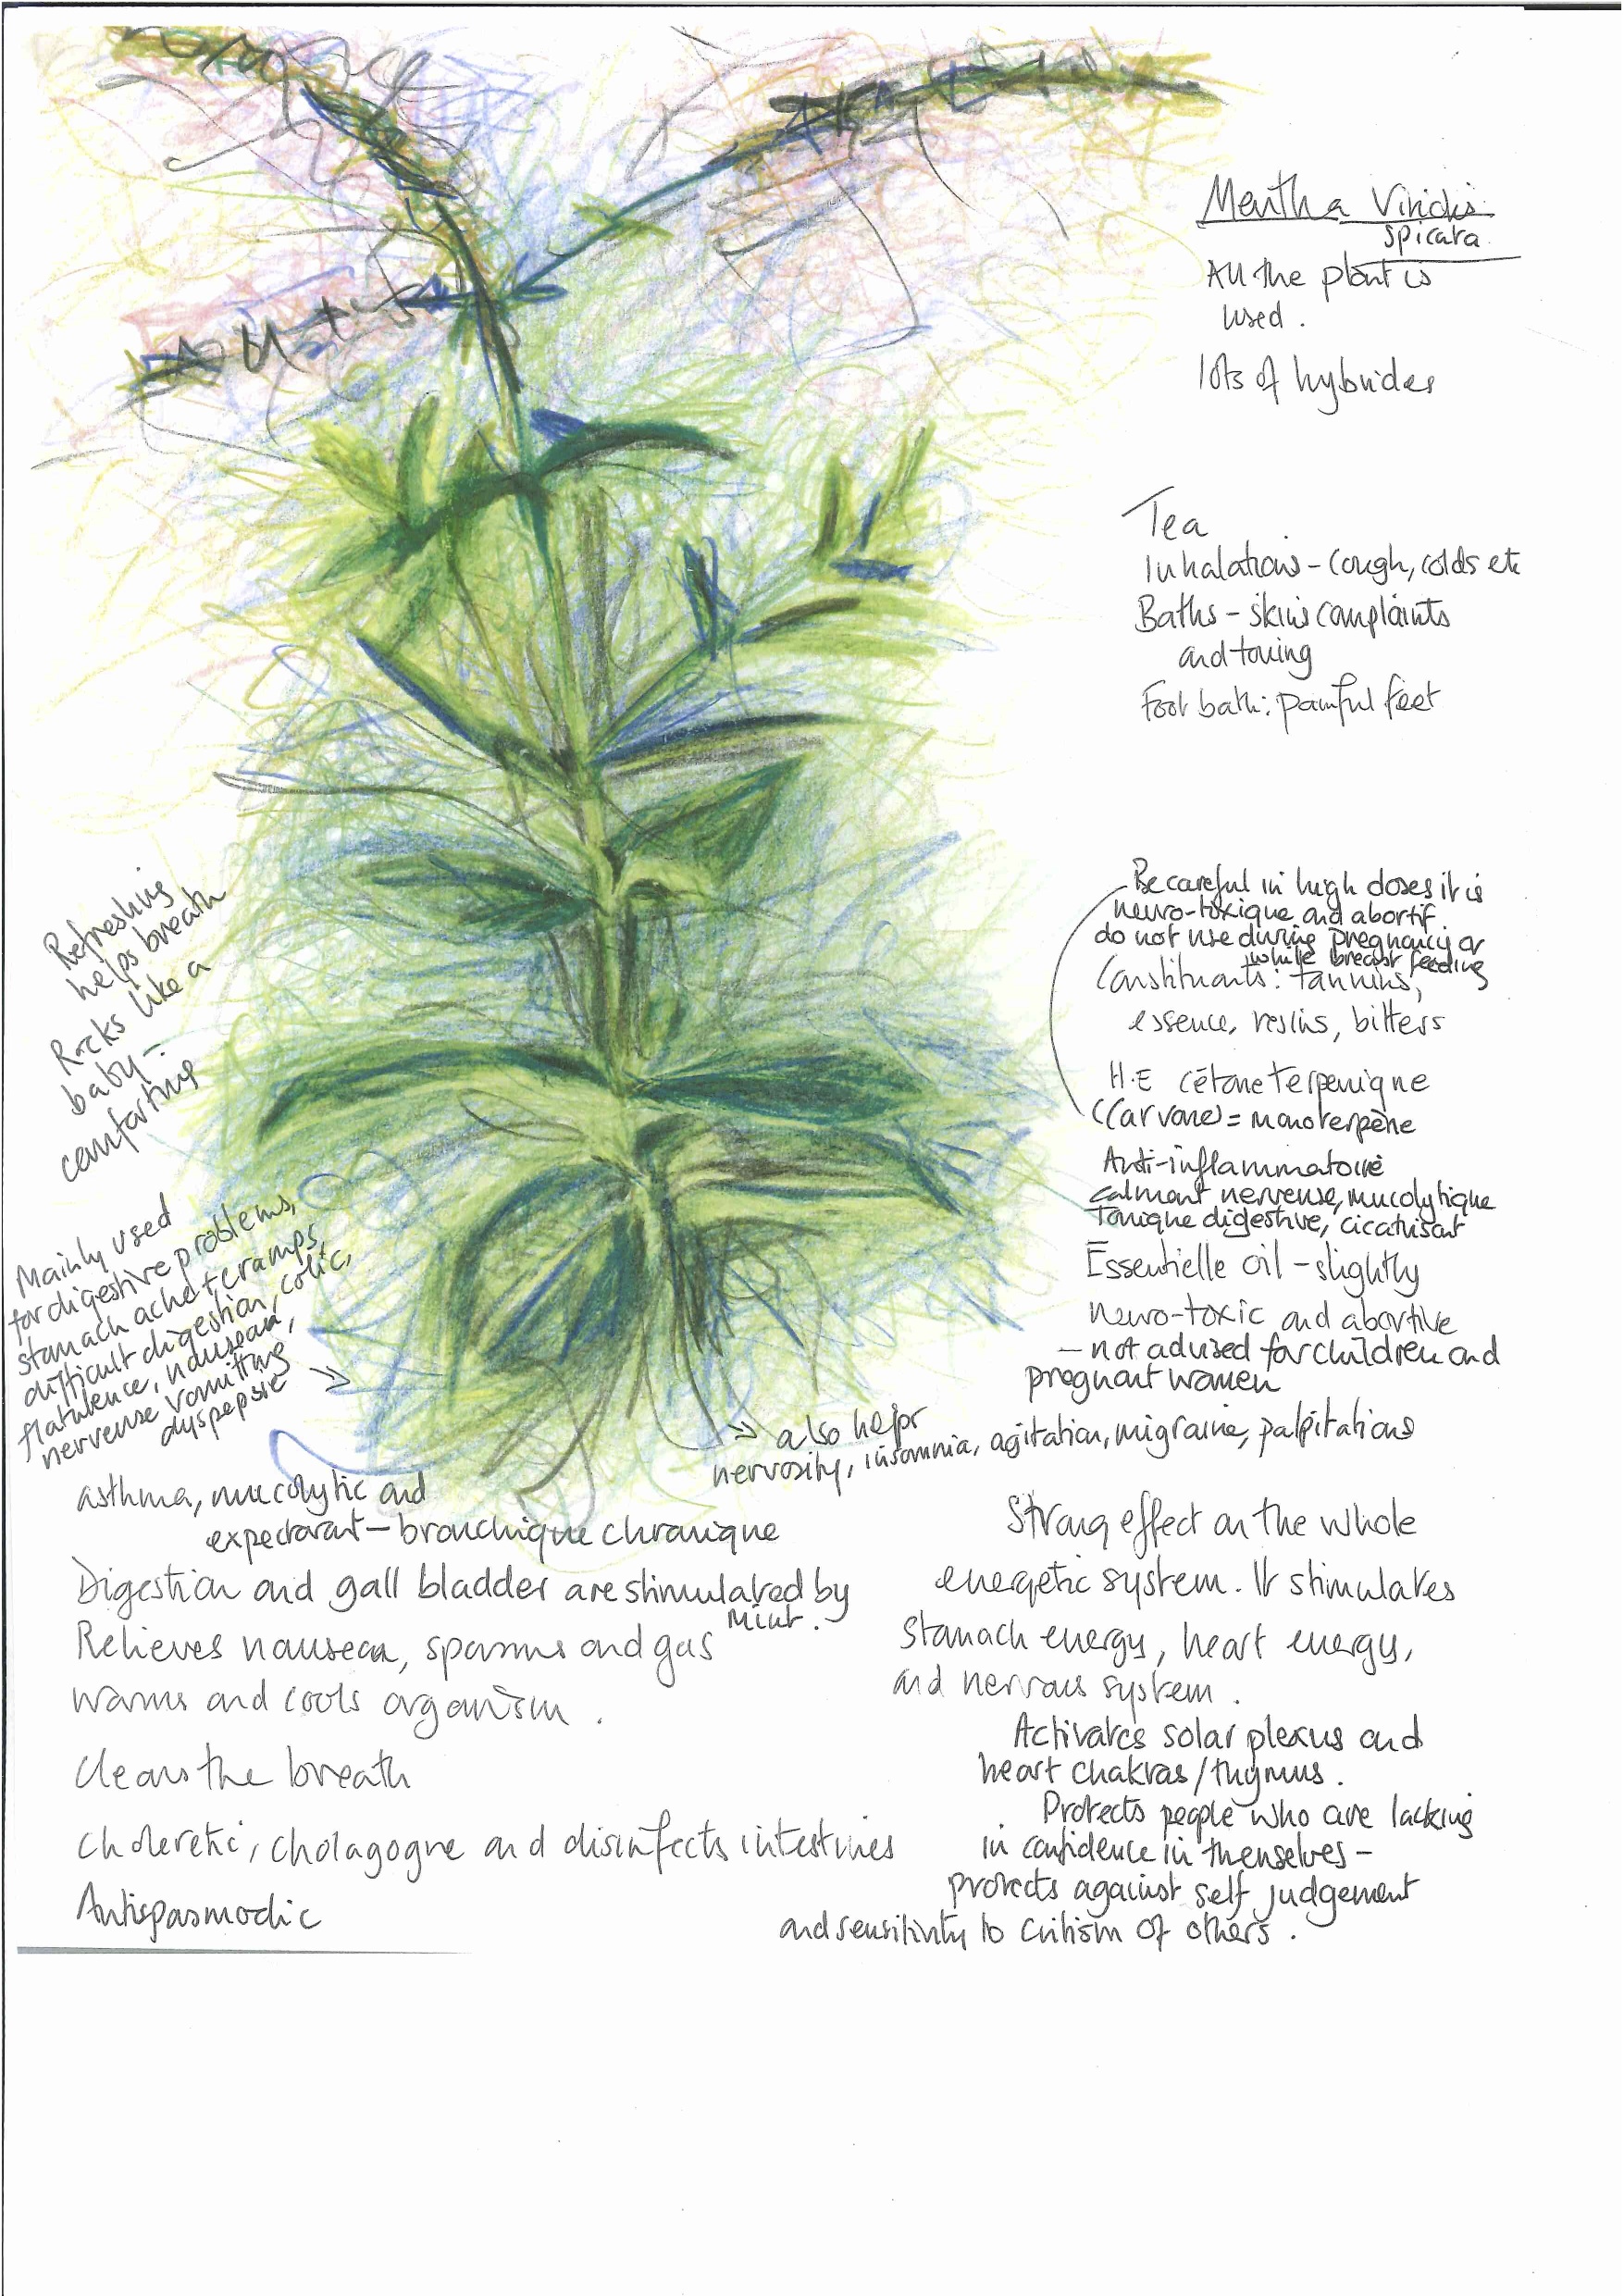 Mentha Viridis
spicata
All the plant is
used.
lots of hybrides
Tea
Inhalations - Cough, colds etc
Baths - skin complaints
and toning
Foot bath: painful feet
Be careful in high doses it is
neuro-toxique and abortif.
do not use during pregnancy or
while breast feeding
Constituants: tannins,
essence, resins, bitters
H.E cétone terpenique
(Carvone) = monoterpène
Anti-inflammatoire
calmant nerveuse, mucolytique
Tonique digestive, cicatrisant
Essentielle oil - slightly
neuro-toxic and abortive
- not advised for children and
pregnant women
Refreshing
helps breath
Rocks like a
baby -
comforting
Mainly used
for digestive problems,
stomach ache + cramps,
difficult digestion, colic,
flatulence, nausea,
nerveuse vomitting
dyspepsie
also helps
nervosity, insomnia, agitation, migraine, palpitations
asthma, mucolytic and
expectorant - bronchique chronique
Digestion and gall bladder are stimulated by
Mint.
Relieves nausea, spasms and gas
warms and cools organism.
Cleans the breath
choleretic, cholagogue and disinfects intestines
Antispasmodic
Strong effect on the whole
energetic system. It stimulates
Stomach energy, heart energy,
and nervous system.
Activates solar plexus and
heart chakras/thymus.
Protects people who are lacking
in confidence in themselves -
protects against self judgement
and sensitivity to critism of others.